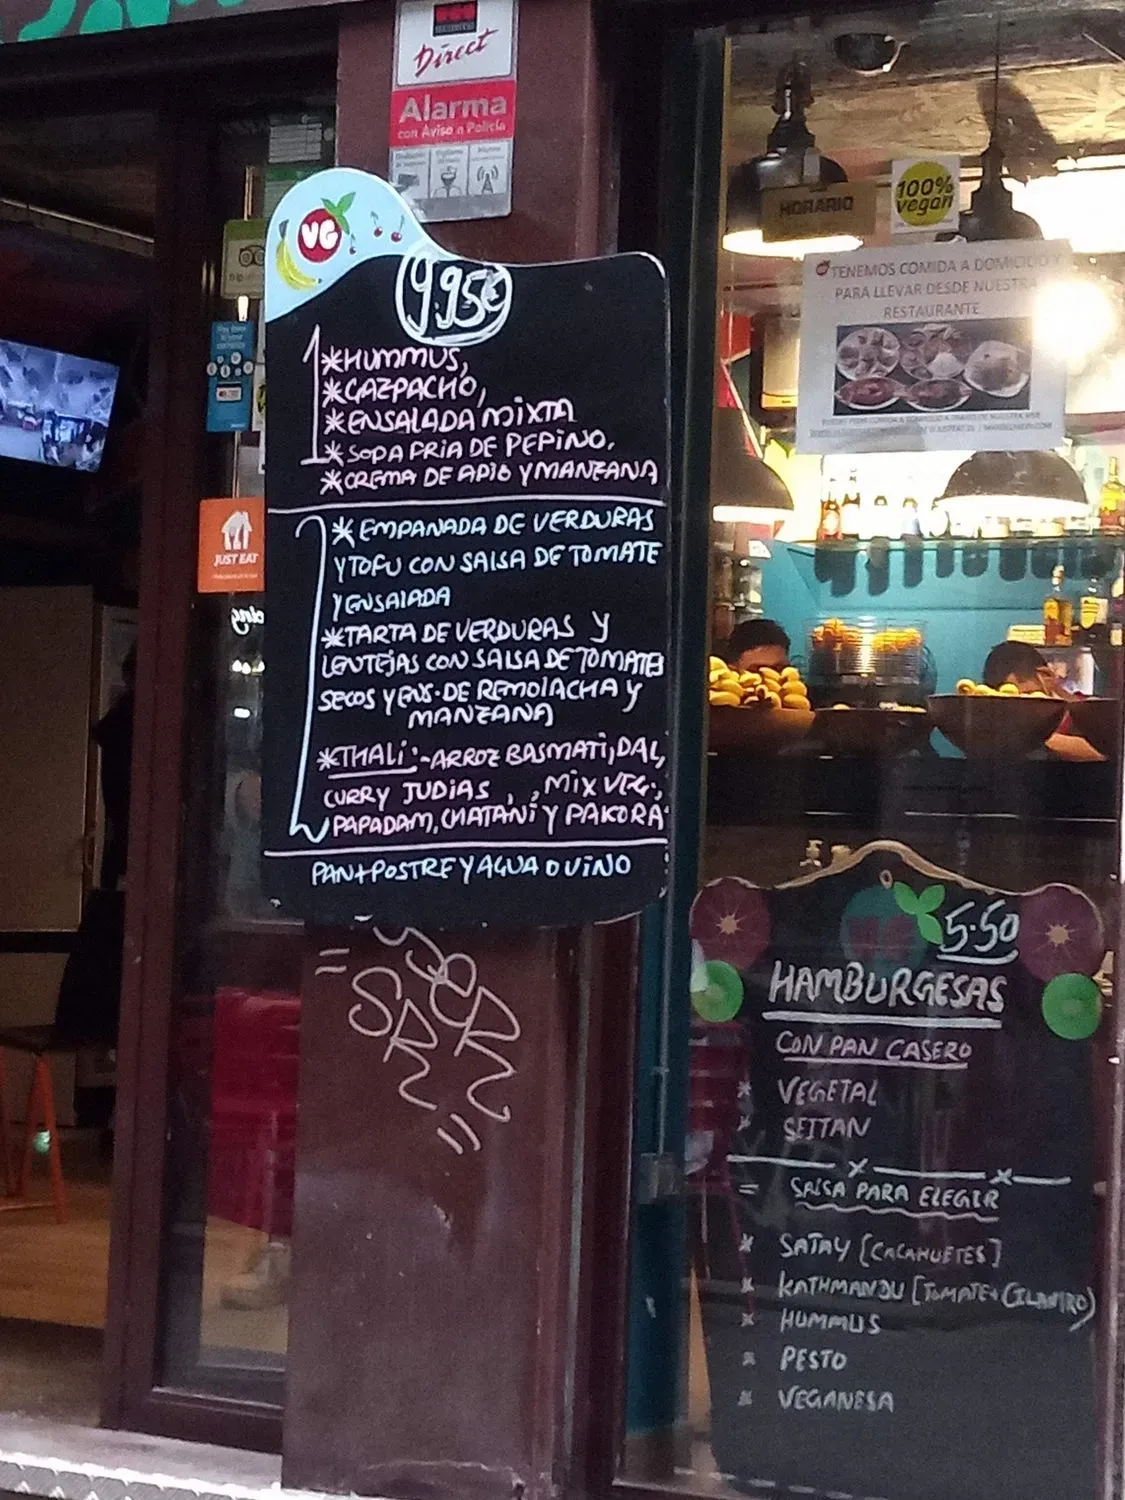 Direct
Alarma
con Aviso a Policía
VG
9.95€
1
*HUMMUS,
*GAZPACHO,
*ENSALADA MIXTA
*SOPA FRIA DE PEPINO,
*CREMA DE APIO Y MANZANA
*EMPANADA DE VERDURAS
Y TOFU CON SALSA DE TOMATE
Y ENSALADA
*TARTA DE VERDURAS Y
LENTEJAS CON SALSA DE TOMATES
SECOS Y ENS. DE REMOLACHA Y
MANZANA
*THALI:-ARROZ BASMATI, DAL,
CURRY JUDIAS, , MIX VEG.,
PAPADAM, CHATANI Y PAKORA
PAN+POSTRE Y AGUA O VINO
JUST EAT
HORARIO
100%
vegan
TENEMOS COMIDA A DOMICILIO Y
PARA LLEVAR DESDE NUESTRA
RESTAURANTE
5.50
HAMBURGESAS
CON PAN CASERO
* VEGETAL
* SEITAN
= SALSA PARA ELEGIR
* SATAY [CACAHUETES]
* KATHMANDU [TOMATE+CILANTRO)
* HUMMUS
* PESTO
* VEGANESA